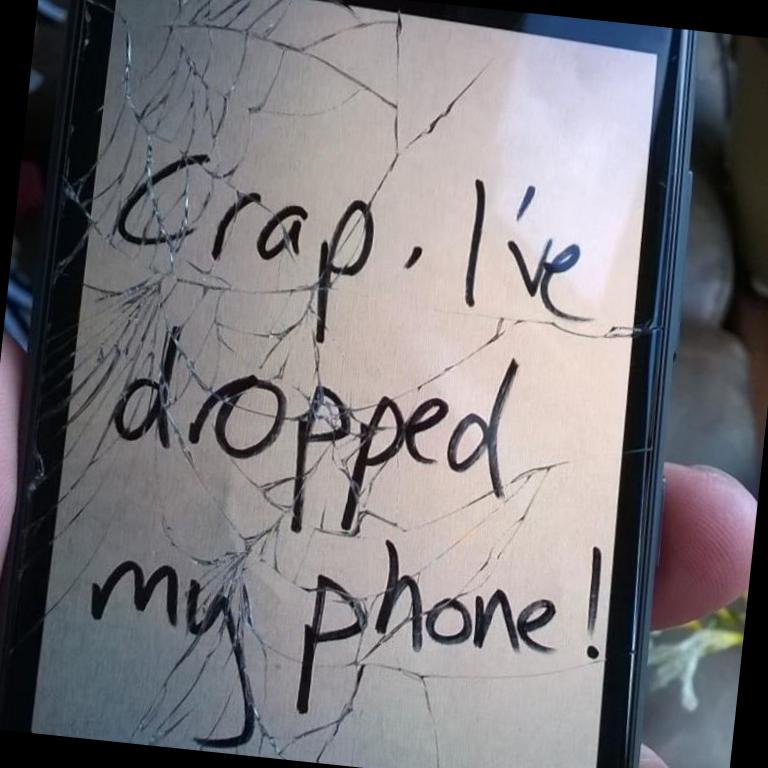 Crap, I've
dropped
my phone!